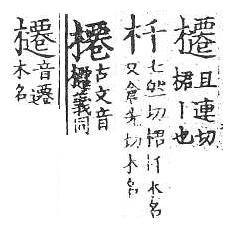 櫏且連切
桾丨也
杄七然切桾杄木名
又倉先切木名
古文音
義同
櫏音遷
木名